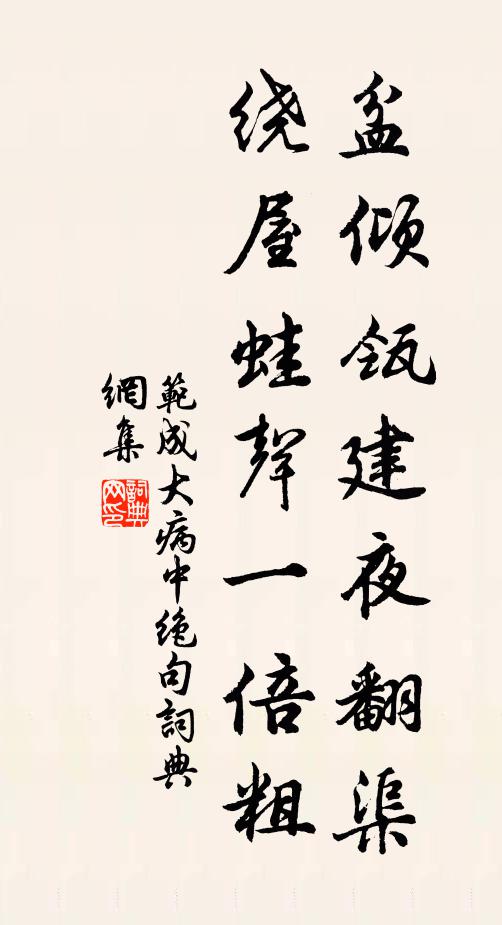 盆傾瓴建夜翻渠
绕屋蛙聲一倍粗
範成大病中绝句詞典
網集
詞典
网印